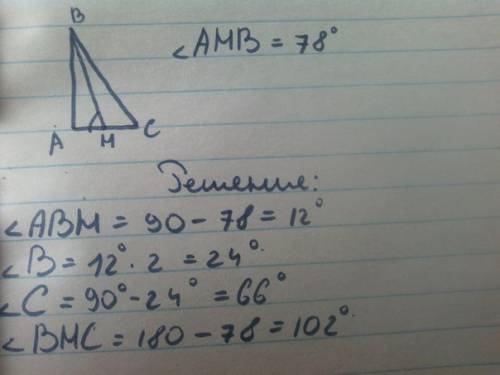 B
∠AMB = 78°
A M C
Решение:
∠ABM = 90 - 78 = 12°
∠B = 12° · 2 = 24°
∠C = 90° - 24° = 66°
∠BMC = 180 - 78 = 102°